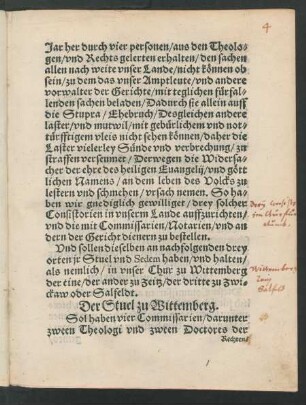 4
Jar her durch vier personen/aus den Theolo-
gen/vnd Rechts gelerten erhalten/den sachen
allen nach weite vnser Lande/nicht können ob
sein/zu dem das vnser Amptleute/vnd andere
vorwalter der Gerichte/mit teglichen fürfal-
lenden sachen beladen/Dadurch sie allein auff
die Stupra/Ehebruch/Desgleichen andere
laster/vnd mutwil/mit gebürlichem vnd not-
türfftigem vleis nicht sehen können/daher die
Laster vielerley Sünde vnd verbrechung/zu
straffen verseumet/Derwegen die Widersa-
cher der ehre des heiligen Euangelij/vnd gött
lichen Namens/an dem leben des Volcks zu
lestern vnd schmehen/vrsach nemen. So ha-
ben wir gnediglich gewilliget/drey solcher
Consistorien in vnsern Lande auffzurichten/
vnd die mit Commissarien/Notarien/vnd an
dern der Gericht dienern zu bestellen.
Vnd sollen dieselben an nachfolgenden drey
orten jr Stuel vnd Sedem haben/vnd halten/
als nemlich/in vnser Chur zu Wittemberg
der eine/der ander zu Zeitz/der dritte zu Zwi-
ckaw oder Salfeldt.
Wittemberg
Der Stuel zu Wittemberg.
Sol haben vier Commissarien/darunter
zween Theologi vnd zween Doctores der
Rechten/